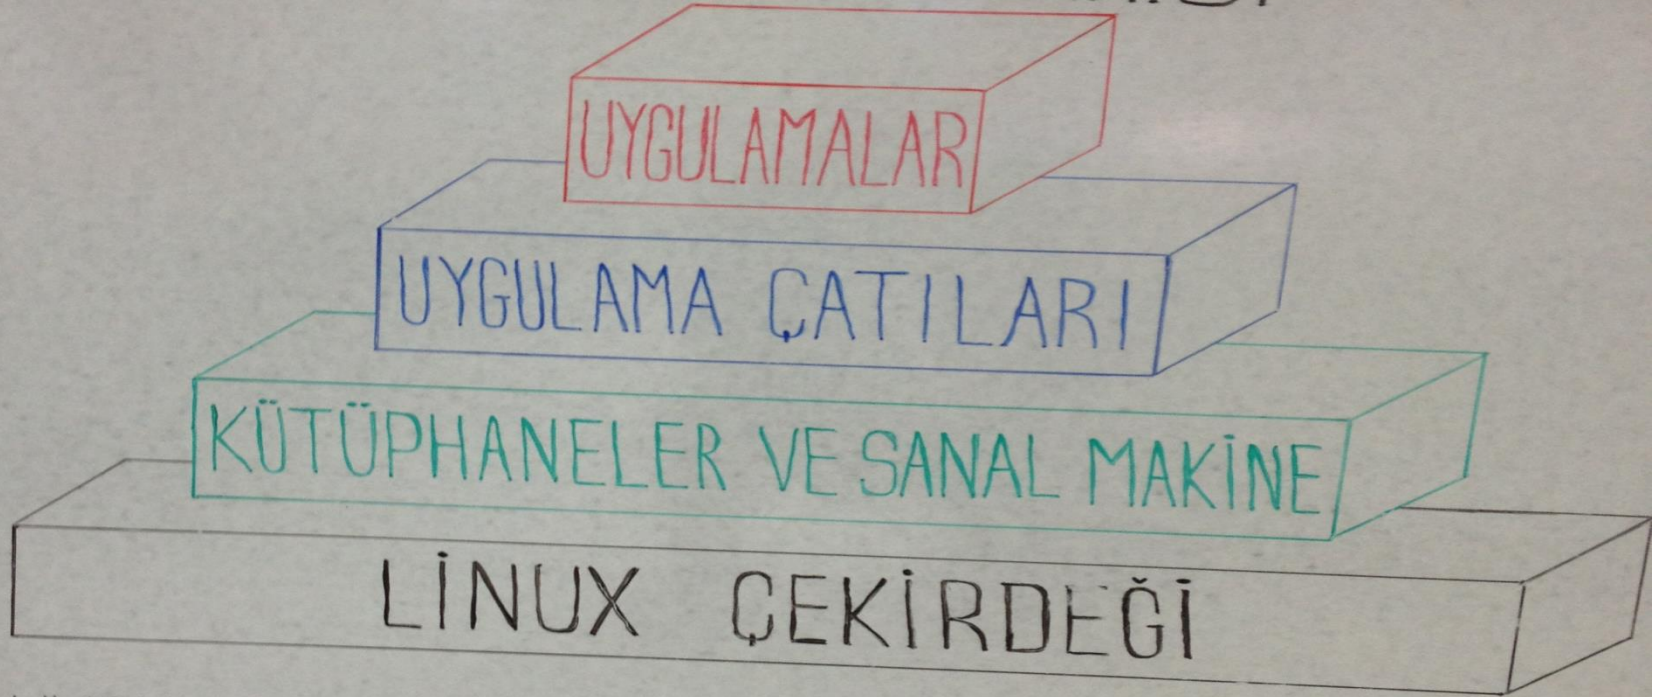 UYGULAMALAR
UYGULAMA ÇATILARI
KÜTÜPHANELER VE SANAL MAKİNE
LİNUX ÇEKİRDEĞİ